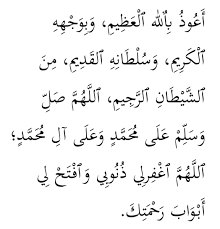 أَعُوذُ بِٱللَّهِ ٱلْعَظِيمِ، وَبِوَجْهِهِ
ٱلْكَرِيمِ، وَسُلْطَانِهِ ٱلْقَدِيمِ، مِنَ
ٱلشَّيْطَانِ ٱلرَّجِيمِ، ٱللَّهُمَّ صَلِّ
وَسَلِّمْ عَلَى مُحَمَّدٍ وَعَلَى آلِ مُحَمَّدٍ؛
ٱللَّهُمَّ ٱغْفِرلِي ذُنُوبِي وَٱفْتَحْ لِي
أَبْوَابَ رَحْمَتِكَ.